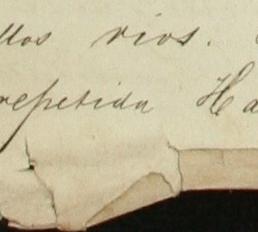 llos rios.
repetida Ha